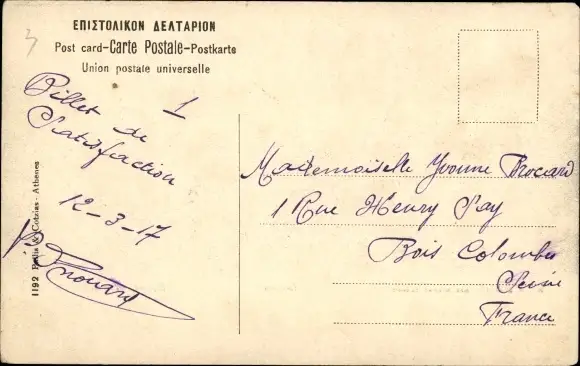 ΕΠΙΣΤΟΛΙΚΟΝ ΔΕΛΤΑΡΙΟΝ
Post card-Carte Postale-Postkarte
Union postale universelle
3
1
Billet de
Satisfaction
12-3-17
1192 Pallis & Cotzias - Athènes
Mademoiselle Yvonne Brocard
1 Rue Henry Pay
Bois Colombe
Seine
France